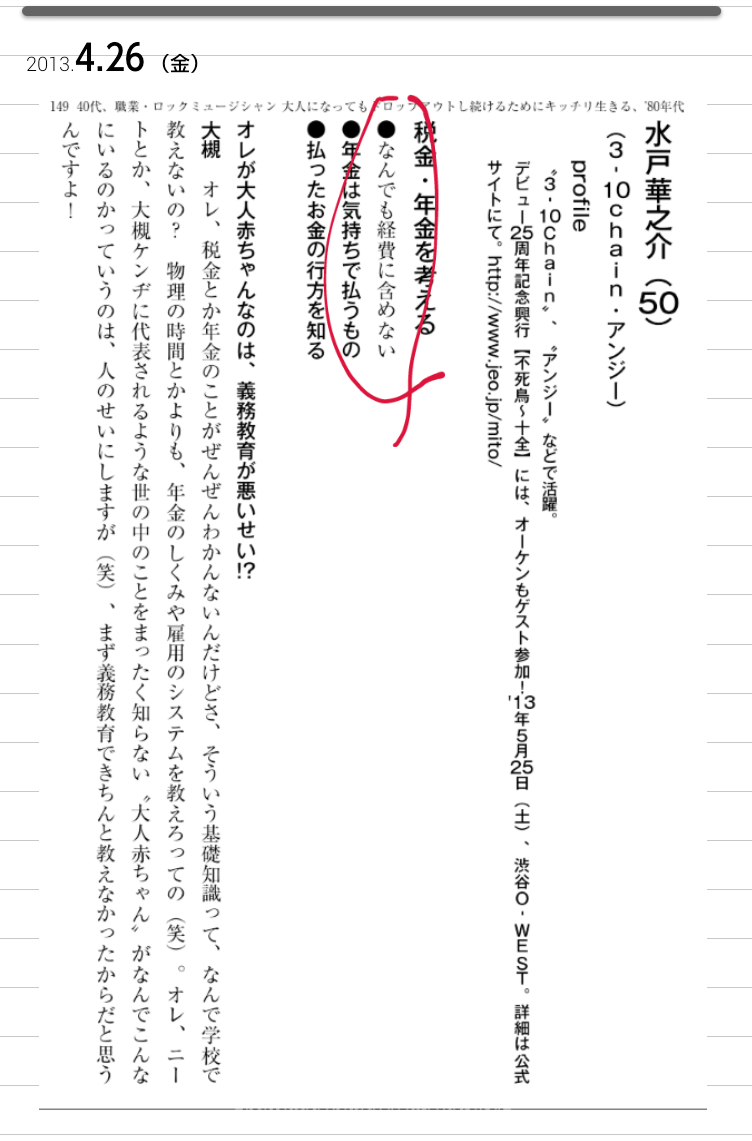 2013.4.26（金）
149 40代、職業・ロックミュージシャン 大人になってもドロップアウトし続けるためにキッチリ生きる、'80年代
水戸華之介（50）
（3-10chain・アンジー）
profile
〝3-10Chain〟、〝アンジー〟などで活躍。
デビュー25周年記念興行【不死鳥～十全】には、オーケンもゲスト参加！'13年5月25日（土）、渋谷O-WEST。詳細は公式
サイトにて。http://www.jeo.jp/mito/
税金・年金を考える
●なんでも経費に含めない
●年金は気持ちで払うもの
●払ったお金の行方を知る
オレが大人赤ちゃんなのは、義務教育が悪いせい!?
大槻　オレ、税金とか年金のことがぜんぜんわかんないんだけどさ、そういう基礎知識って、なんで学校で
教えないの？　物理の時間とかよりも、年金のしくみや雇用のシステムを教えろっての（笑）。オレ、ニー
トとか、大槻ケンヂに代表されるような世の中のことをまったく知らない〝大人赤ちゃん〟がなんでこんな
にいるのかっていうのは、人のせいにしますが（笑）、まず義務教育できちんと教えなかったからだと思う
んですよ！